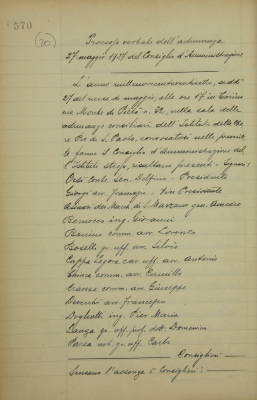 570
(70)
Processo verbale dell'adunanza
27 maggio 1937 del Consiglio d'Amministrazione
L'anno millenovecentotrentasette, addì
27 del mese di maggio, alle ore 17 in Torino
via Monte di Pietà n. 32, nella sala delle
adunanze consiliari dell'Istituto delle Opere
Pie di S. Paolo, convocatosi nelle prescritte
forme il Consiglio di Amministrazione dell'
Istituto stesso, risultano presenti i Signori:
Conte Sen. Delfino - Presidente
Giorgi avv. - Vice Presidente
dei March. di S. Marzano gen. Amedeo
ing. Giovanni
Bovino comm. avv. Lorenzo
Boselli gr. uff. avv. Silvio
Cappa cav. uff. avv. Antonio
comm. avv. Camillo
comm. avv. Giuseppe
avv. Francesco
Dogliotti ing. Pier Maria
Lanza gr. uff. prof. dott. Domenico
gr. uff. Carlo
Consiglieri
l'assenza i Consiglieri: